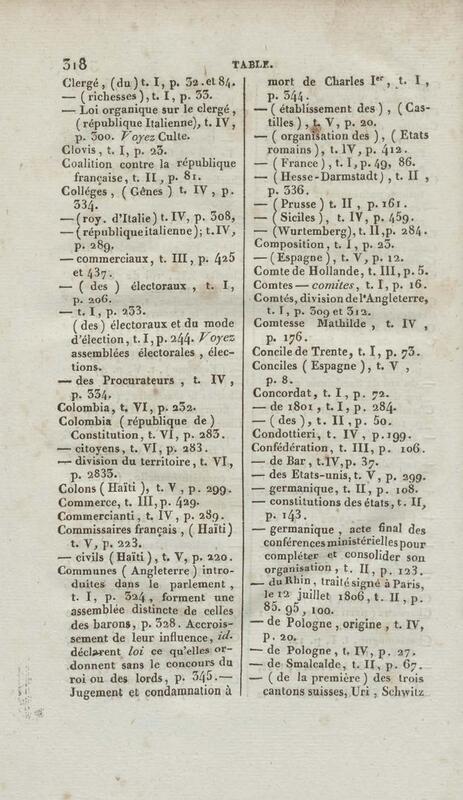 318 TABLE.
Clergé, (du) t. I, p. 32. et 84.
— (richesses), t. I, p. 33.
— Loi organique sur le clergé,
(république Italienne), t. IV,
p. 300. Voyez Culte.
Clovis, t. I, p. 23.
Coalition contre la république
française, t. II, p. 81.
Colléges, (Gênes) t. IV, p.
334.
— (roy. d'Italie) t. IV, p. 308,
— (république italienne); t. IV,
p. 289.
— commerciaux, t. III, p. 425
et 437.
— ( des ) électoraux, t. I,
p. 206.
— t. I, p. 233.
(des) électoraux et du mode
d'élection, t. I, p. 244. Voyez
assemblées électorales, élec-
tions.
— des Procurateurs, t. IV,
p. 334.
Colombia, t. VI, p. 232.
Colombia (république de)
Constitution, t. VI, p. 283.
— citoyens, t. VI, p. 283.
— division du territoire, t. VI,
p. 2833.
Colons (Haïti), t. V, p. 299.
Commerce, t. III, p. 429.
Commercianti, t. IV, p. 289.
Commissaires français, (Haïti)
t. V, p. 223.
— civils (Haïti), t. V, p. 220.
Communes (Angleterre) intro-
duites dans le parlement,
t. I, p. 324, forment une
assemblée distincte de celles
des barons, p. 328. Accrois-
sement de leur influence, id.
déclarent loi ce qu'elles or-
donnent sans le concours du
roi ou des lords, p. 345.—
Jugement et condamnation à
mort de Charles Ier, t. I,
p. 344.
— (établissement des), (Cas-
tilles), t. V, p. 20.
— (organisation des), (Etats
romains), t. IV, p. 412.
— (France), t. I, p. 49, 86.
— (Hesse-Darmstadt), t. II,
p. 336.
— (Prusse) t. II, p. 161.
— (Siciles), t. IV, p. 459.
— (Wurtemberg), t. II, p. 284.
Composition, t. I, p. 23.
— (Espagne), t. V, p. 12.
Comte de Hollande, t. III, p. 5.
Comtes — comites, t. I, p. 16.
Comtés, division de l'Angleterre,
t. I, p. 309 et 312.
Comtesse Mathilde, t. IV,
p. 176.
Concile de Trente, t. I, p. 73.
Conciles (Espagne), t. V,
p. 8.
Concordat, t. I, p. 72.
— de 1801, t. I, p. 284.
— (des), t. II, p. 50.
Condottieri, t. IV, p. 199.
Confédération, t. III, p. 106.
— de Bar, t. IV, p. 37.
— des Etats-unis, t. V, p. 299.
— germanique, t. II, p. 108.
— constitutions des états, t. II,
p. 143.
— germanique, acte final des
conférences ministérielles pour
compléter et consolider son
organisation, t. II, p. 123.
— du Rhin, traité signé à Paris,
le 12 juillet 1806, t. II, p.
85. 95, 100.
— de Pologne, origine, t. IV,
p. 20.
— de Pologne, t. IV, p. 27.
— de Smalcalde, t. II, p. 67.
— (de la première) des trois
cantons suisses, Uri, Schwitz